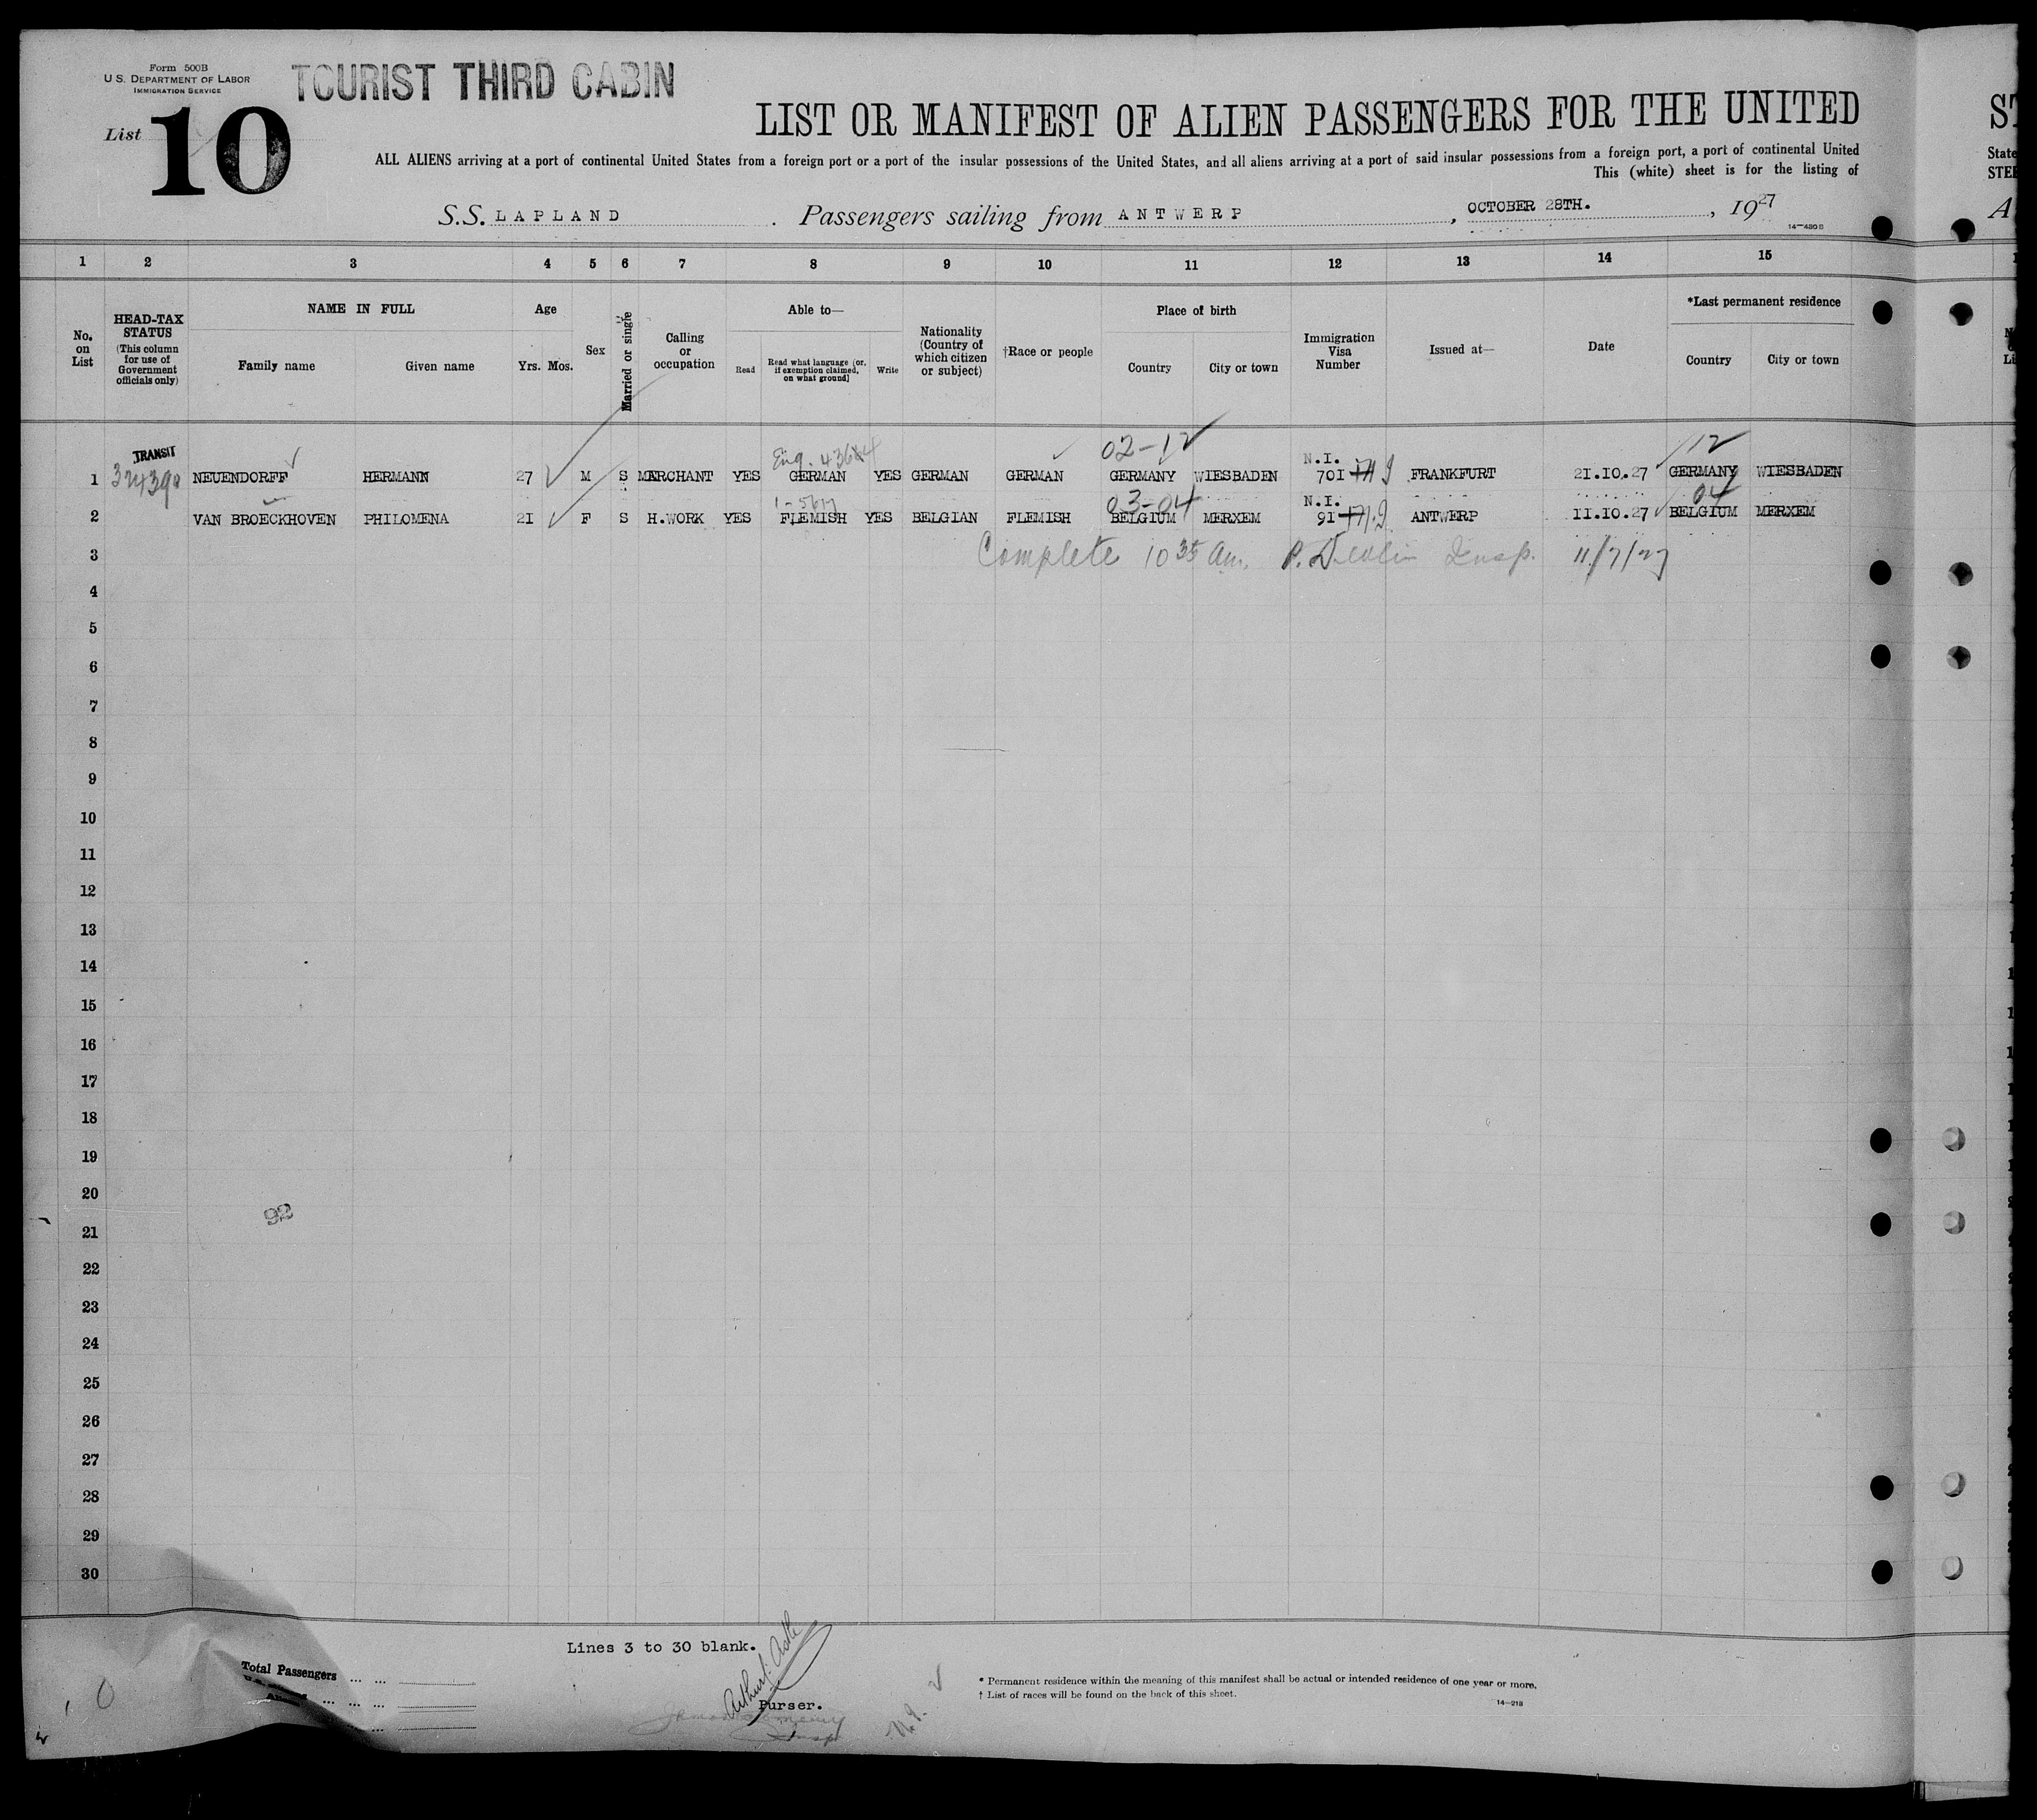 Form 500B
U. S. DEPARTMENT OF LABOR
IMMIGRATION SERVICE
TOURIST THIRD CABIN
List 10
LIST OR MANIFEST OF ALIEN PASSENGERS FOR THE UNITED
ALL ALIENS arriving at a port of continental United States from a foreign port or a port of the insular possessions of the United States, and all aliens arriving at a port of said insular possessions from a foreign port, a port of continental United
This (white) sheet is for the listing of
S.S. LAPLAND. Passengers sailing from ANTWERP, OCTOBER 28TH., 1927
14-480B
1 2 3 4 5 6 7 8 9 10 11 12 13 14 15
No. on List
HEAD-TAX STATUS
(This column for use of Government officials only)
NAME IN FULL
Family name Given name
Age
Yrs. Mos.
Sex
Married or single
Calling or occupation
Able to—
Read
Read what language (or, if exemption claimed, on what ground)
Write
Nationality (Country of which citizen or subject)
†Race or people
Place of birth
Country City or town
Immigration Visa Number
Issued at—
Date
*Last permanent residence
Country City or town
TRANSIT Eng. 43684 02-12 N.I. 12
1 NEUENDORFF HERMANN 27 M S MERCHANT YES GERMAN YES GERMAN GERMAN GERMANY WIESBADEN 701 FRANKFURT 21.10.27 GERMANY WIESBADEN
03-04 N.I. 04
2 VAN BROECKHOVEN PHILOMENA 21 F S H.WORK YES FLEMISH YES BELGIAN FLEMISH BELGIUM MERXEM 91 ANTWERP 11.10.27 BELGIUM MERXEM
3 Complete 10 35 am. P. Devlin Insp. 11/7/27
4
5
6
7
8
9
10
11
12
13
14
15
16
17
18
19
20
92
21
22
23
24
25
26
27
28
29
30
Lines 3 to 30 blank.
Total Passengers
Purser.
Insp
* Permanent residence within the meaning of this manifest shall be actual or intended residence of one year or more.
† List of races will be found on the back of this sheet.
14-218